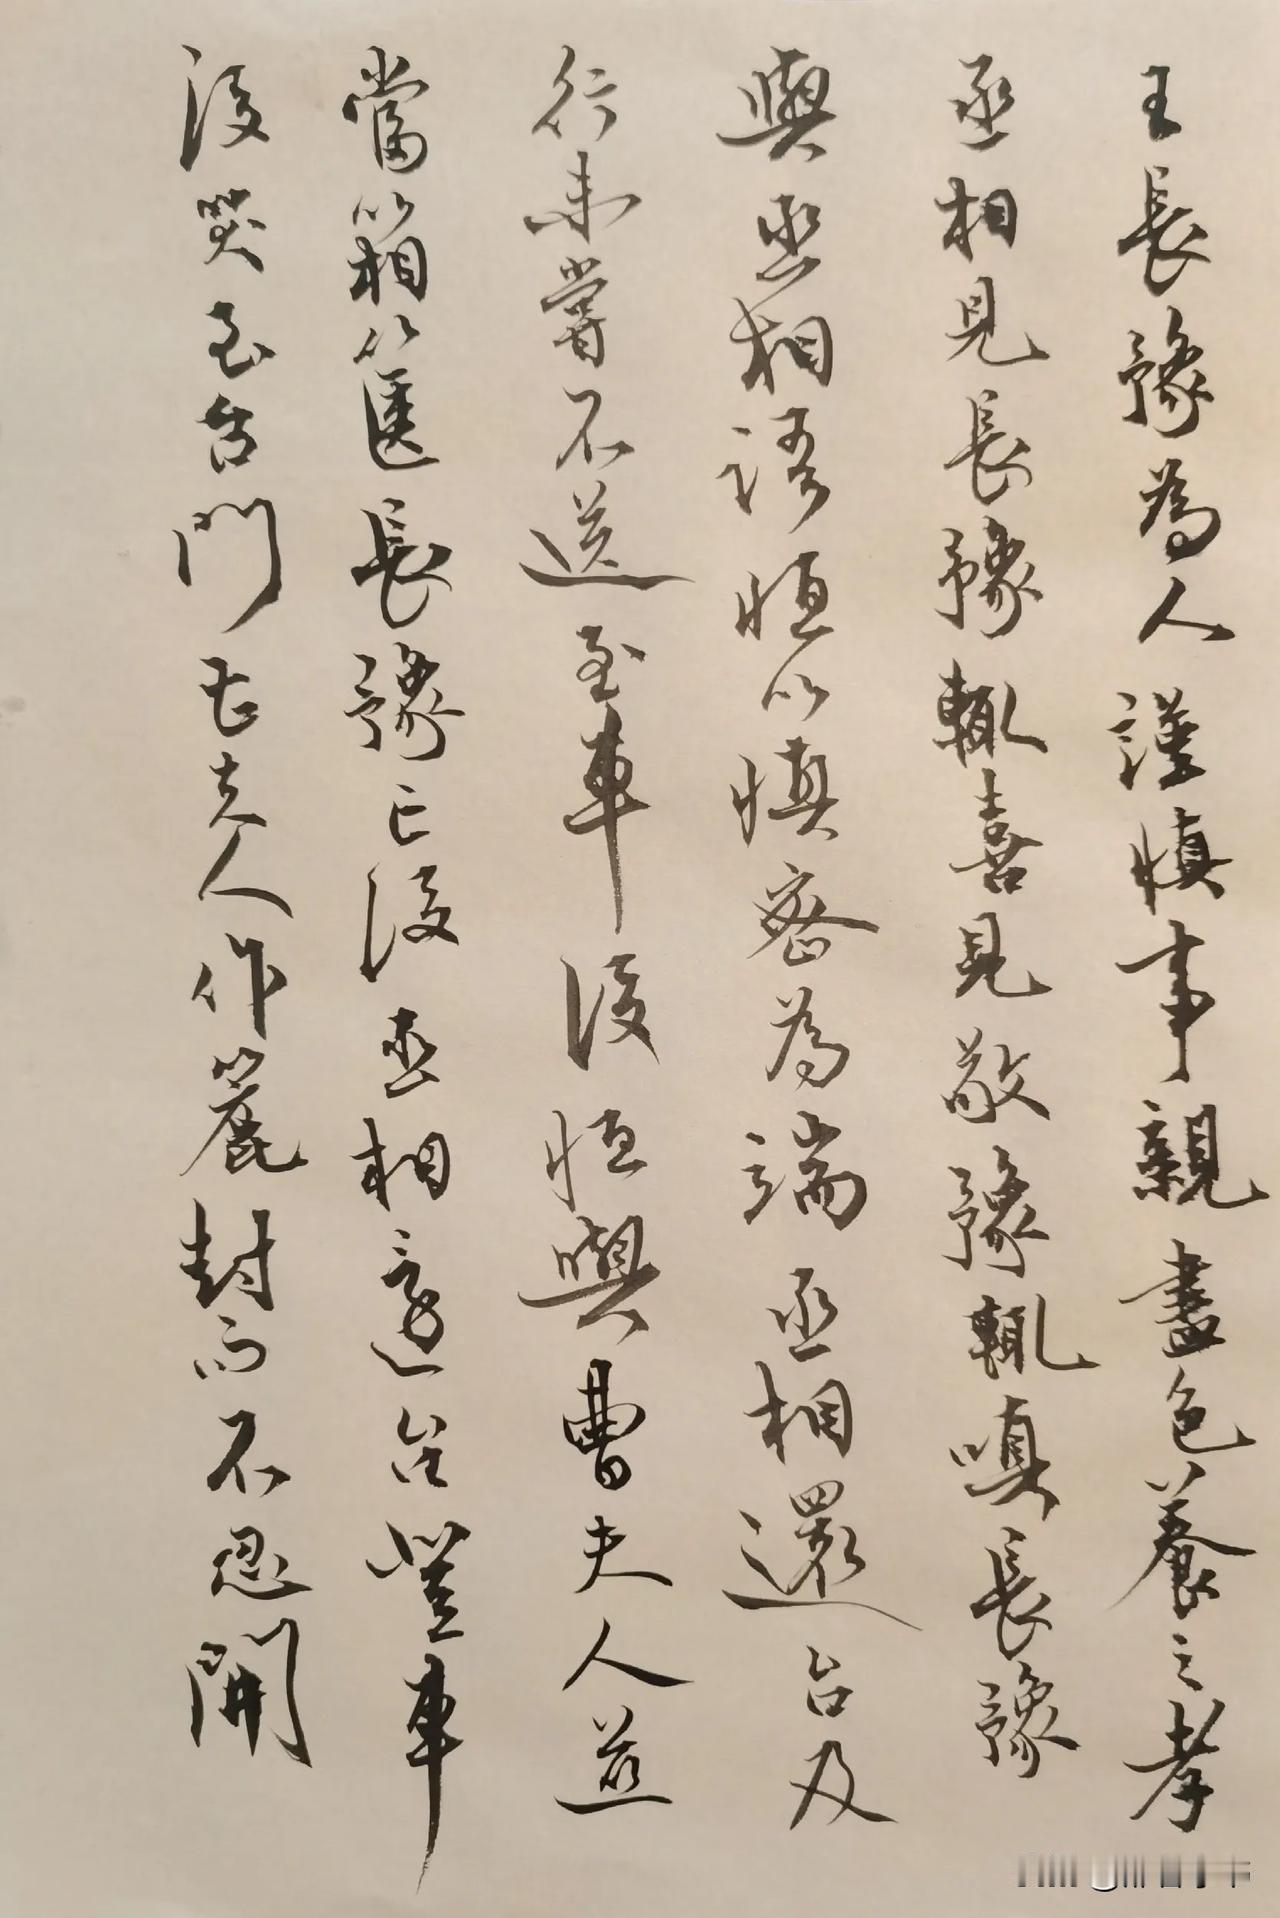 王長豫為人謹慎事親盡色養之孝
丞相見長豫輒喜見敬豫輒嗔長豫
與丞相語恒以慎密為端丞相還台及
行未嘗不送至車後恒與曹夫人並
當箱篋長豫亡後丞相還台登車
後哭至台門曹夫人作簏封而不忍開